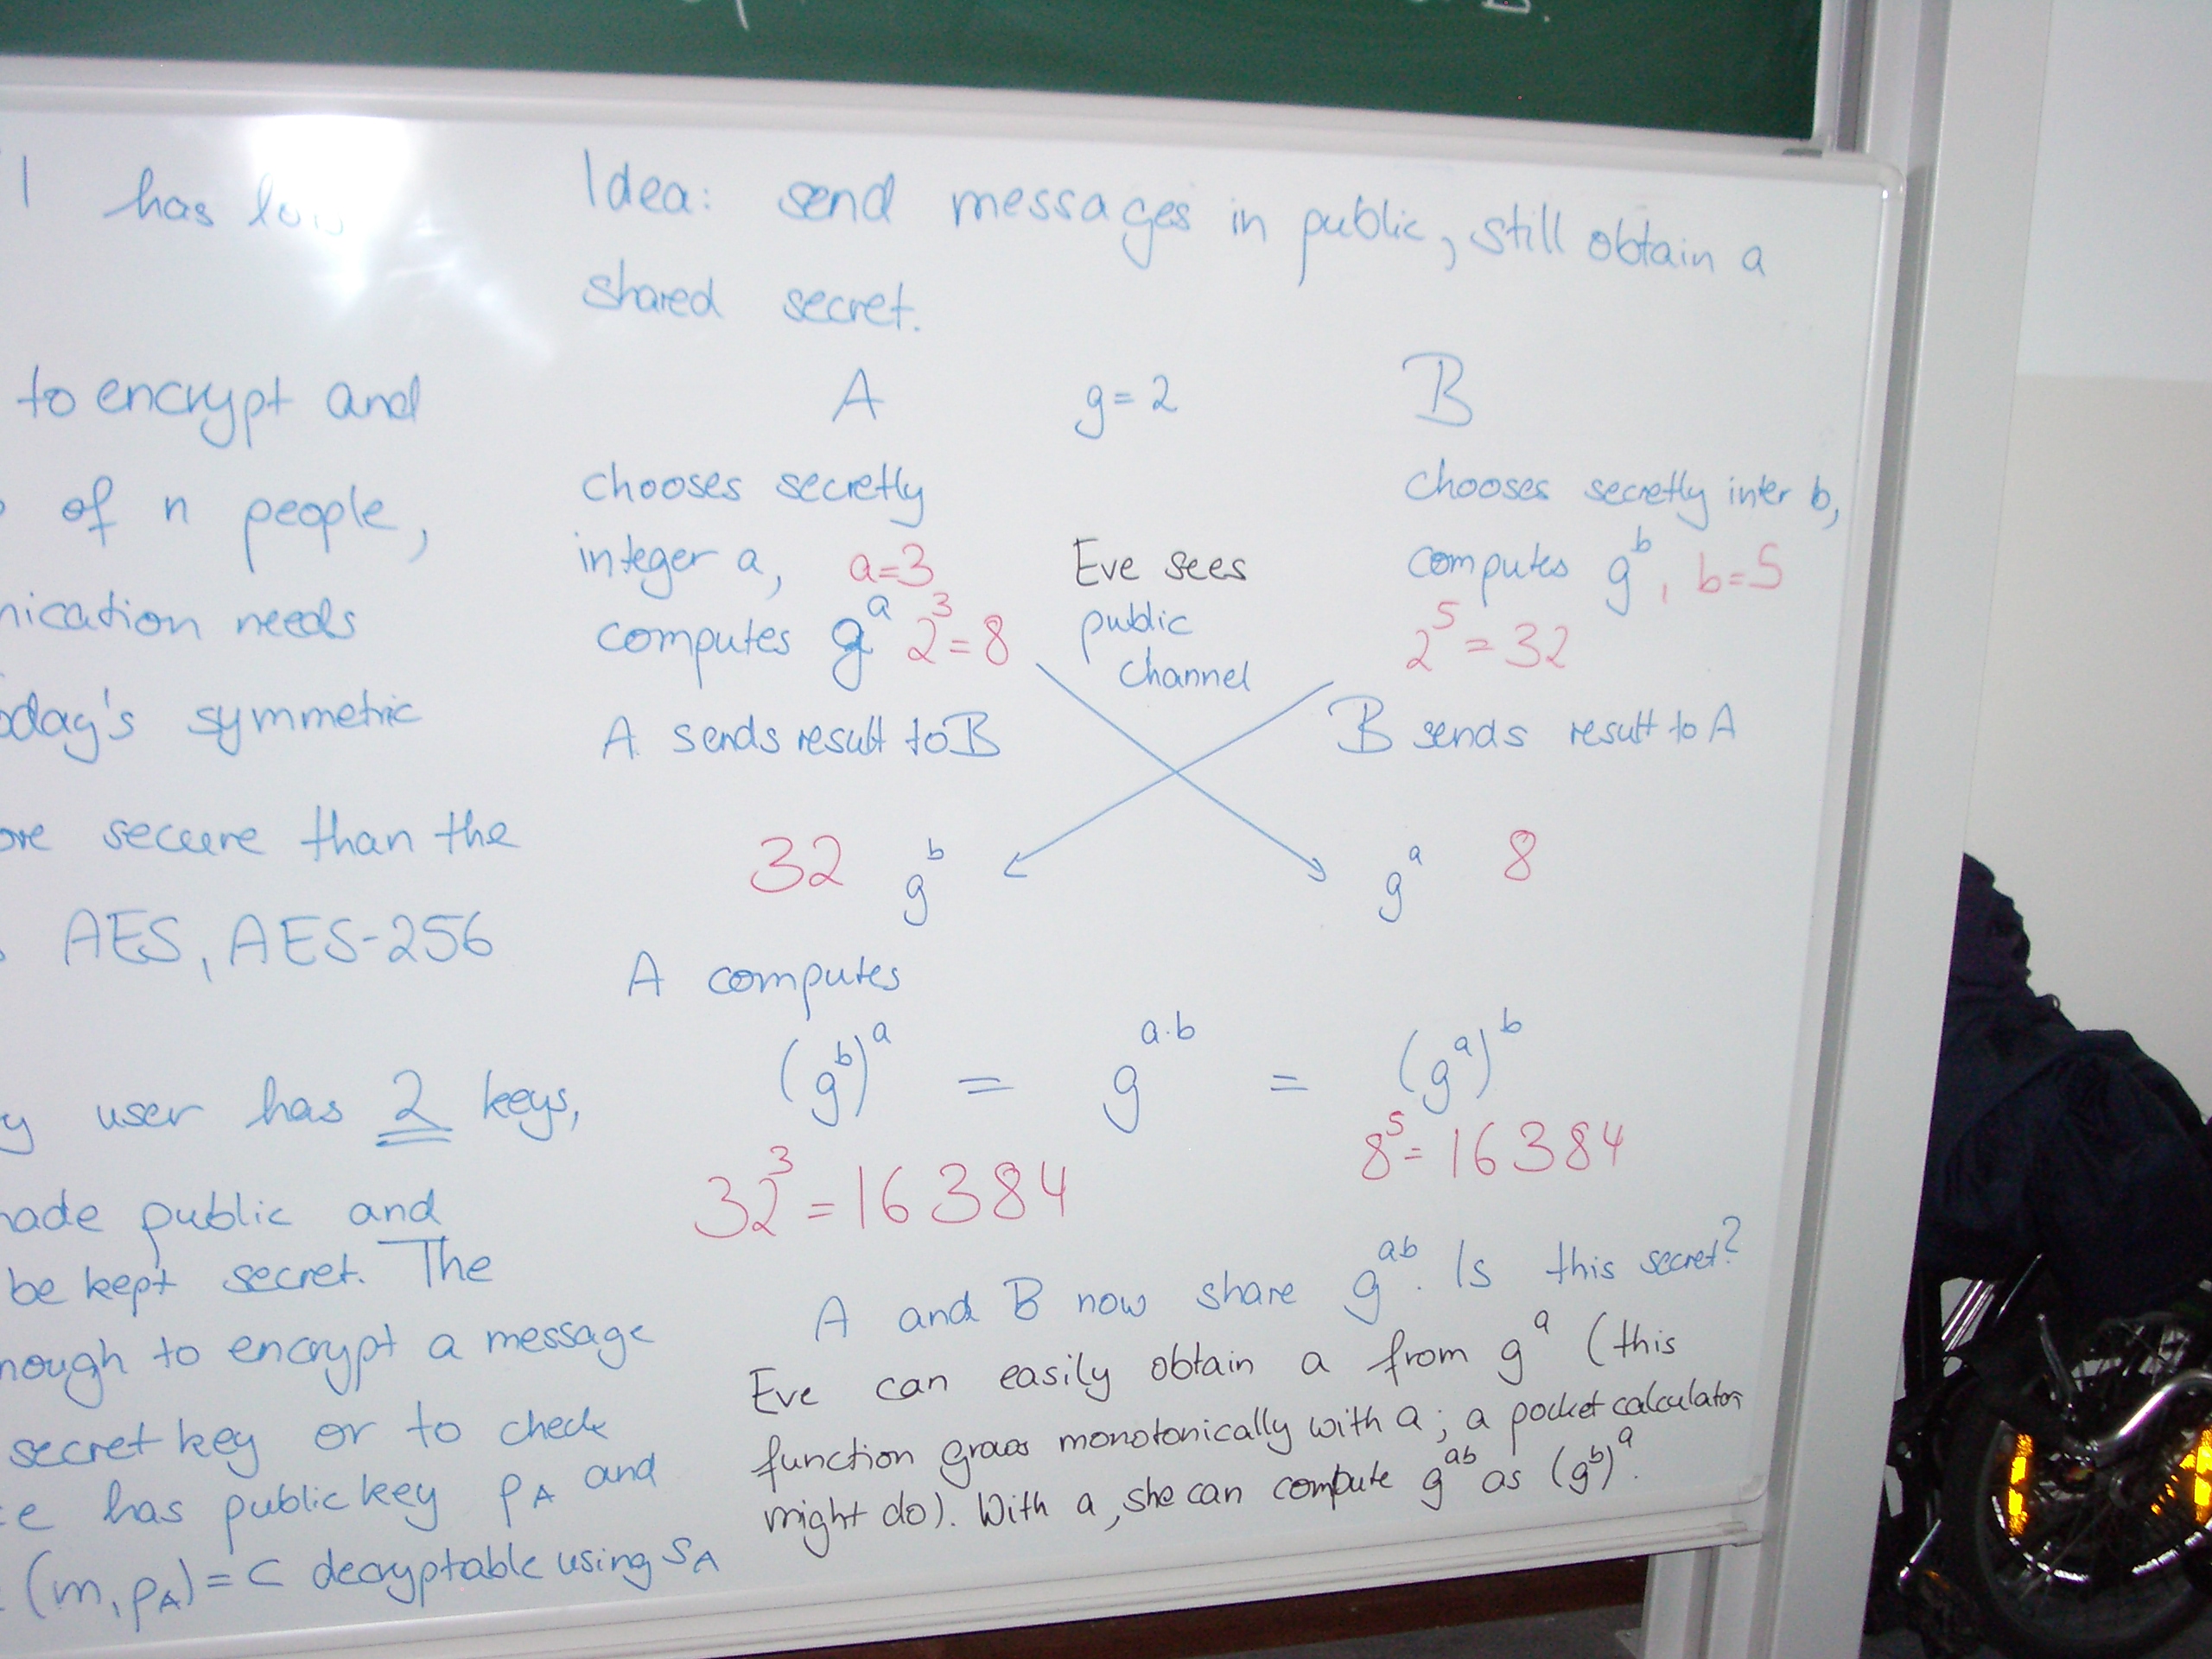 B.
has low
to encrypt and
of n people,
needs
symmetric
secure than the
AES, AES-256
user has 2 keys,
public and
be kept secret. The
to encrypt a message
secret key or to check
has public key pA and
(m, pA) = c decryptable using sA
Idea: send messages in public, still obtain a
shared secret.
A g = 2 B
chooses secretly
integer a, a=3
computes g^a 2^3 = 8
A sends result to B
Eve sees
public
channel
chooses secretly inter b,
computes g^b, b=5
2^5 = 32
B sends result to A
32 g^b g^a 8
A computes
(g^b)^a = g^a·b = (g^a)^b
32^3 = 16384 8^5 = 16384
A and B now share g^ab. Is this secret?
Eve can easily obtain a from g^a (this
function grows monotonically with a; a pocket calculator
might do). With a, she can compute g^ab as (g^b)^a.